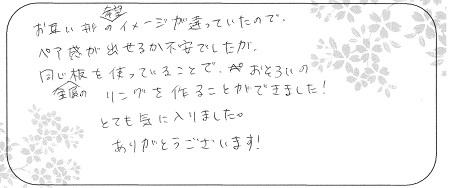 お互い希望のイメージが違っていたので、
ペア感が出せるか不安でしたが、
同じ板を使っていることで、おそろいの
金属のリングを作ることができました!
とても気に入りました。
ありがとうございます!